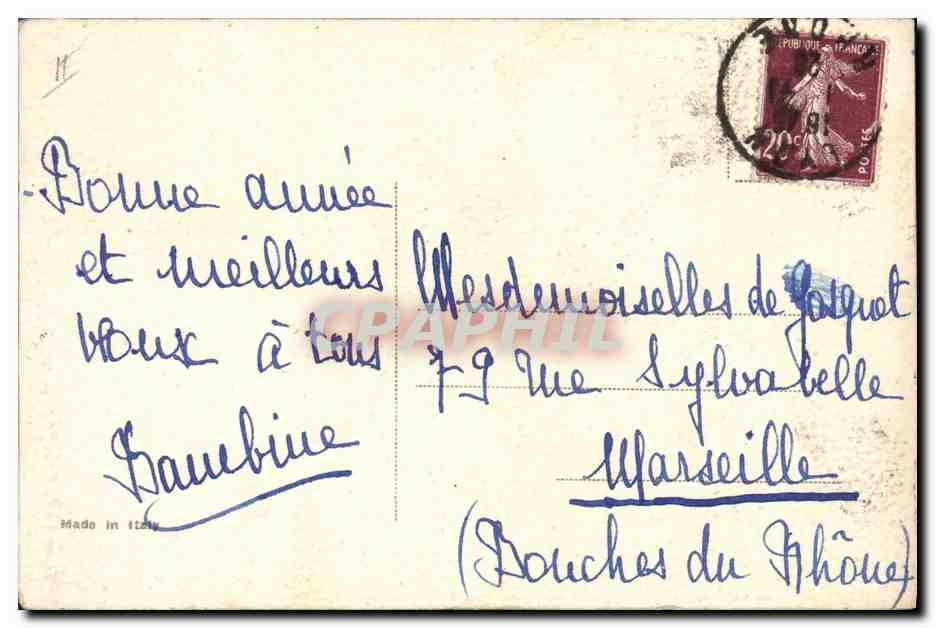 Bonne année
et meilleurs
vœux à tous
Bambine
Made in Italy
RÉPUBLIQUE FRANÇAISE
20c
POSTES
Mesdemoiselles de Gasquet
79 rue Sylvabelle
Marseille
(Bouches du Rhône)
CPAPHIL